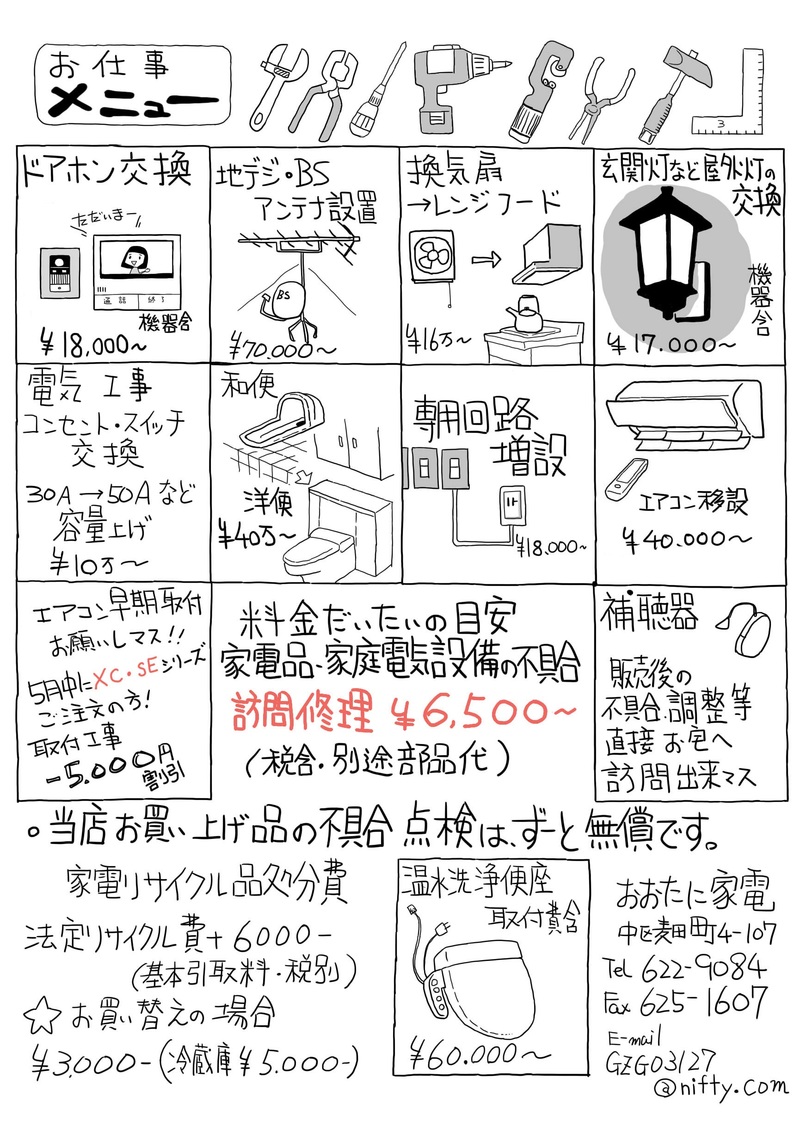 お仕事
メニュー
3
ドアホン交換
ただいまー
通話 終了
機器含
¥18,000〜
地デジ・BS
アンテナ設置
BS
¥70.000〜
換気扇
→レンジフード
¥16万〜
玄関灯など屋外灯の
交換
機器含
¥17.000〜
電気工事
コンセント・スイッチ
交換
30A→50Aなど
容量上げ
¥10万〜
和便
洋便
¥40万〜
専用回路
増設
¥18.000〜
エアコン移設
¥40.000〜
エアコン早期取付
お願いしマス!!
5月中にXC・SEシリーズ
ご注文の方!
取付工事
-5.000円
割引
料金だいたいの目安
家電品、家庭電気設備の不具合
訪問修理 ¥6,500〜
(税含・別途部品代)
補聴器
販売後の
不具合、調整等
直接お宅へ
訪問出来マス
・当店お買い上げ品の不具合点検は、ずーと無償です。
家電リサイクル品処分費
法定リサイクル費+6000-
(基本引取料・税別)
☆お買い替えの場合
¥3.000-(冷蔵庫¥5.000-)
温水洗浄便座
取付費含
¥60.000〜
おおたに家電
中区麦田町4-107
Tel 622-9084
Fax 625-1607
E-mail
GZG03127
@nifty.com